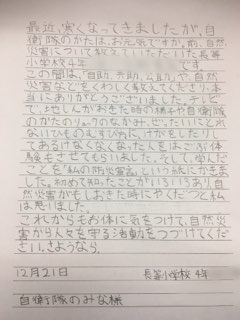 最近、寒くなってきましたが、自
衛隊のかたは、お元気ですか。前、自然
災害について教えていただいた長等
小学校4年 です。
この間は、「自助、共助、公助」や、自然
災害などをくわしく教えてくださり、本
当にありがとうございました。テレビ
で、地しんが起きた時の様や自衛隊
のかたのリュックのなかみ、ぜったいにとれ
ないひものむすび方に、けがをしたりし
てあるけなくなった人をはこぶ体
験もさせてもらいました。そして、学んだ
ことを「私の防災宣言」という紙にかきま
した。初めて知ったことがいろいろあり、自
然災害がもしおきた時にやくだつと私
は思いました。
これからもお体に気をつけて、自然災
害から人々を守る活動をつづけてくだ
さい。さようなら。
12月21日 長等小学校 4年
自衛隊のみな様